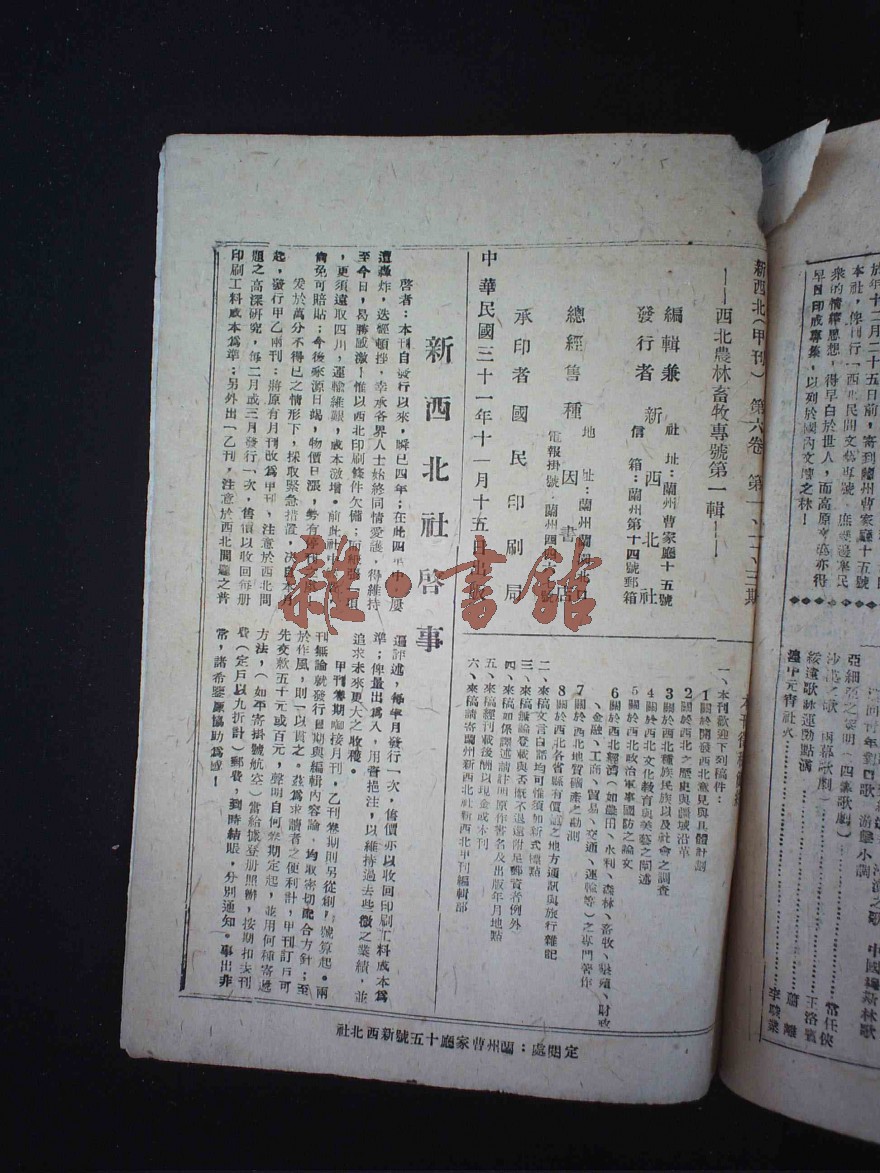 於年十二月二十五日前，寄到蘭州曹家廳十五號
本社，俾刊行「西北民間文藝專號」庶幾邊寨民
衆的情釋思想，得早白於世人，而高原文藝亦得
早日印成專集，以列於國內文壇之林！
亞細亞之黎明（四幕歌劇）
沙漠之歌（兩幕歌劇）
常任俠
綏遠歌詠運動點滴
王洛賓
邊中元宵社火
李駿業
新西北（甲刊）第六卷 第一、二、三期
——西北農林畜牧專號第一輯——
編輯兼發行者 新西北社
社址：蘭州曹家廳十五號
信箱：蘭州第十四號郵箱
總經售 種因書店
承印者 國民印刷局
中華民國三十一年十一月十五日出版
一、本刊歡迎下列稿件：
1關於開發西北意見與具體計劃
2關於西北之歷史與疆域沿革
3關於西北種族民族以及社會之調查
4關於西北文化教育與美藝之闡述
5關於西北政治軍事國防之論文
6關於西北經濟（如農田、水利、森林、畜牧、墾殖、財政
、金融、工商、貿易、交通、運輸等）之專門著作
7關於西北地質礦產之勘測
8關於西北各省縣有價値之地方通訊與旅行雜記
二、來稿文言白話均可惟須加新式標點
三、來稿無論登載與否概不退還附足郵資者例外
四、來稿如係譯述請註明原作書名及出版年月地點
五、來稿經刊載後酬以現金或本刊
六、來稿請寄蘭州西北社新西北甲刊編輯部
新西北社啓事
啓者：本刊自發行以來，瞬已四年；在此四年中，屢
遭轟炸，迭經頓挫，幸承各界人士始終同情愛護，得維持
至今日，曷勝感激！惟以西北印刷條件欠備；而紙張一項
，更須遠取四川，運輸維艱，成本激增。前此社中
尙免可賠貼；今後來源日竭，物價日漲，勢有停刊之
爰於萬分不得已之情形下，採取緊急措置，決自本月
起，發行甲乙兩刊：將原有月刊改爲甲刊，注意於西北問
題之高深研究，每二月或三月發行一次，售價以收回每册
印刷工料成本爲準；另外出一乙刊，注意於西北問題之普
遍評述，每半月發行一次，售價亦以收回印刷工料成本爲
準；俾量出爲入，用資挹注，以維持過去些微之業績，並
追求未來更大之收穫。
甲刊卷期啣接月刊。乙刊卷期則另從創刊號算起。兩
刊無論就發行日期與編輯內容論，均取密切配合方針；至
於作風，則一以貫之。茲爲求讀者之便利計，甲刊訂戶可
先交款五十元或百元，聲明自何卷期定起，並用何種寄遞
方法，（如平寄掛號航空）當給據登册照辦，按期扣去刊
費（定戶以九折計）郵費，到時結賬，分別通知。事出非
常，諸希鑒原協助爲感！
定閱處：蘭州曹家廳十五號新西北社
雜·書館